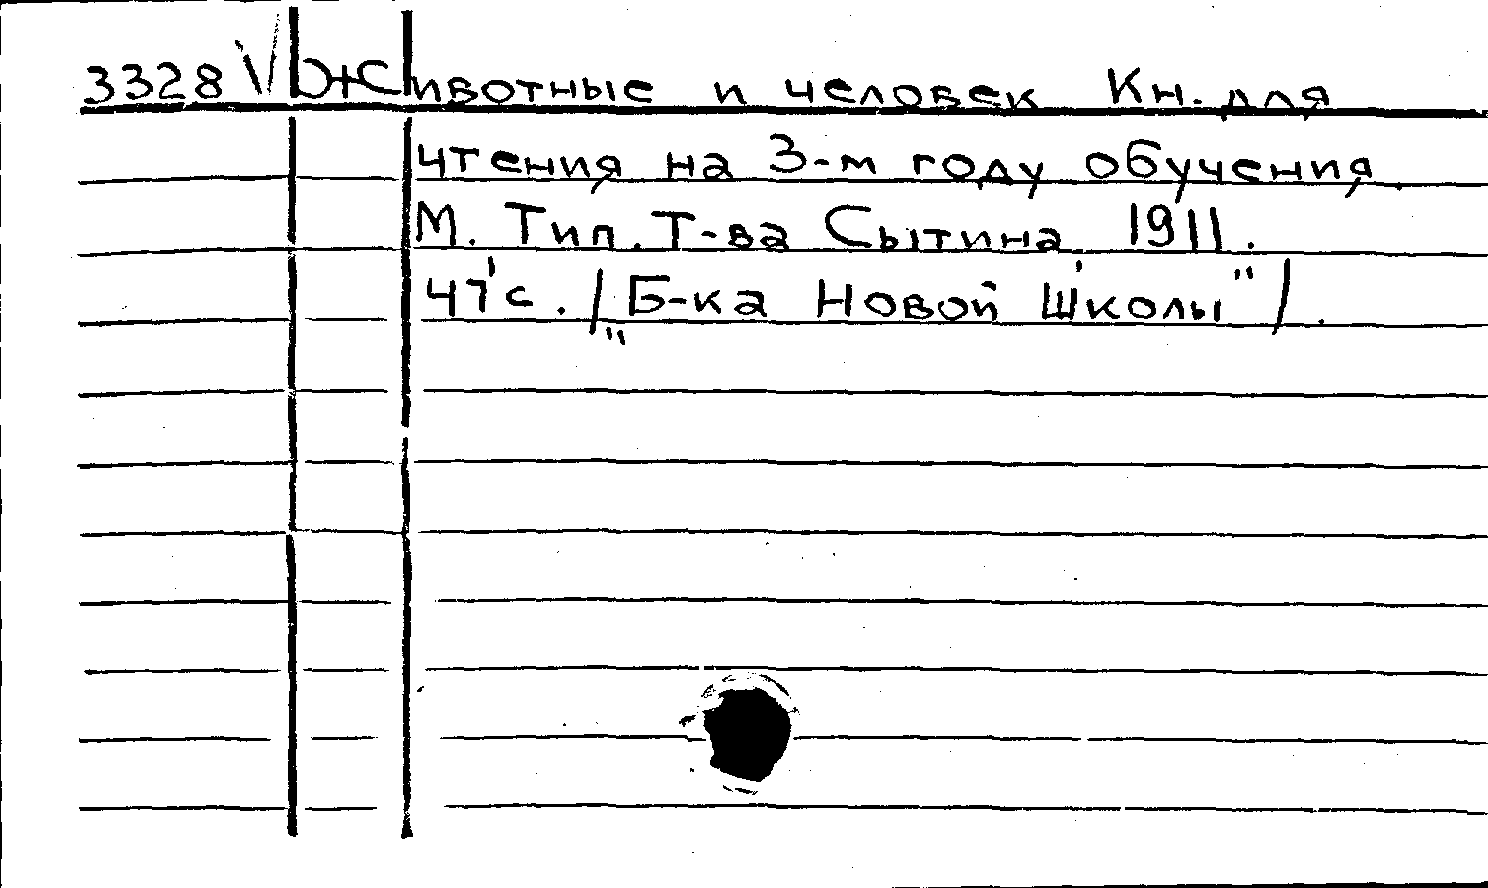 3328 V Животные и человек Кн. для
чтения на 3-м году обучения.
М. Тип. Т-ва Сытина, 1911.
47 с. /„Б-ка Новой Школы"/.